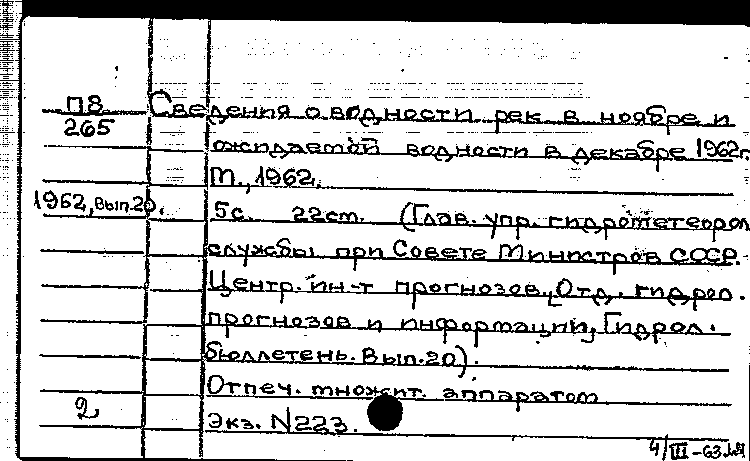 П8 Сведения о водности рек в ноябре и
265
ожидаемой водности в декабре 1962г.
М., 1962.
1962, вып.20. 5с. 22см. (Глав. упр. гидрометеорол.
службы при Совете Министров СССР.
Центр. ин-т прогнозов. Отд. гидрол.
прогнозов и информации, Гидрол.
бюллетень. Вып.20).
Отпеч. множит. аппаратом
2 Экз. N223.
4/III-63